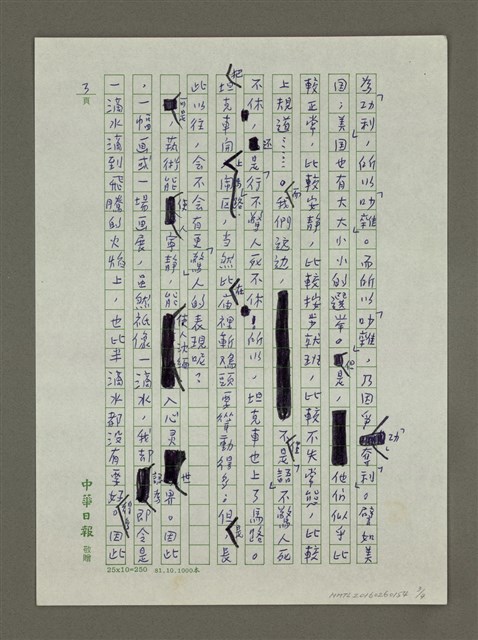 為「功利」，所以「吵雜」。而所以「吵雜」，乃因爭「功」奪「利」。譬如美
国；美国也有大大小小的選举。但是，他們似乎比
較正常，比較安静，比較按步就班，比較不失常態，比較
上規道……。而我們這边，不是「語不驚人死
不休」，还是「行不驚人死不休」！所以，坦克車也上了馬路。
把坦克車開上「馬路」，当然比在庙裡斬鸡頭要聳動得多；但長
此以往，会不会有更「驚人」的表現呢？
可是，藝術能使人寧静，能使人沈緬入心灵世界。因此
，一幅画或一場画展，虽然祇像一滴水，我都 即令是
一滴水滴到飛騰的火焰上，也比半滴水都没有要好。因此
3
頁
中華日報
敬贈
25x10=250 81.10.1000本
NMTL20160260152 3/4